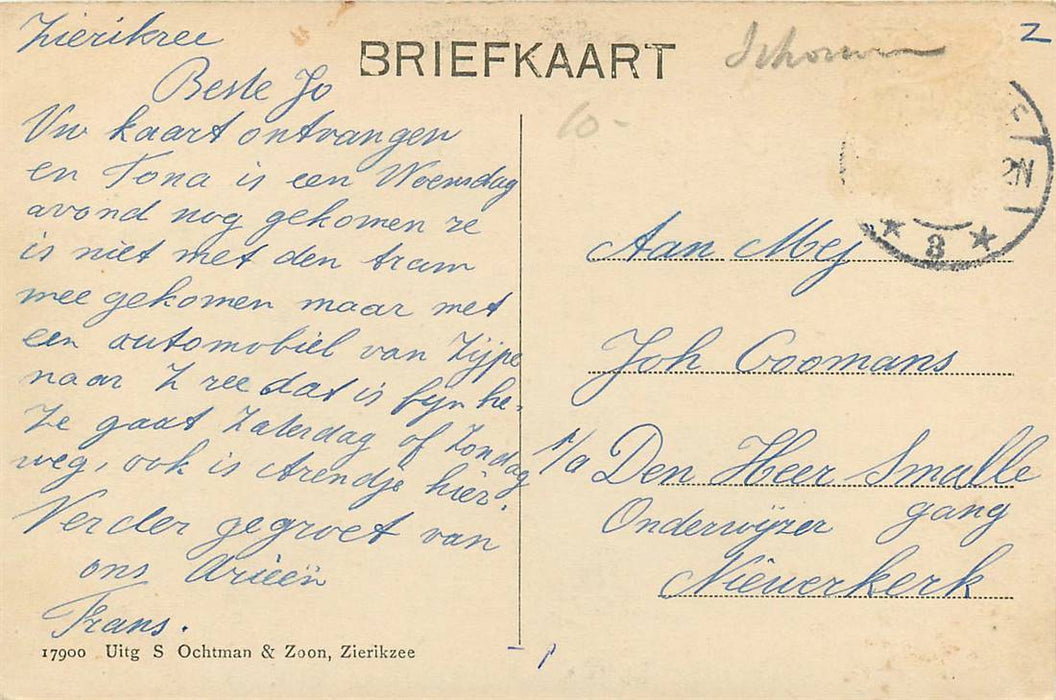 Zierikzee
Beste Jo
Uw kaart ontvangen
en Tona is een Woensdag
avond nog gekomen ze
is niet met den tram
mee gekomen maar met
een automobiel van Zijpe
naar Z zee dat is fijn he.
Ze gaat Zaterdag of Zondag
weg, ook is Arendje hier.
Verder gegroet van
ons Arieën
Frans.
17900 Uitg S Ochtman & Zoon, Zierikzee
BRIEFKAART
Schouwen
Z
10-
3
Aan Mej
Joh Coomans
p/a Den Heer Smalle
gang
Onderwijzer
Nieuwerkerk